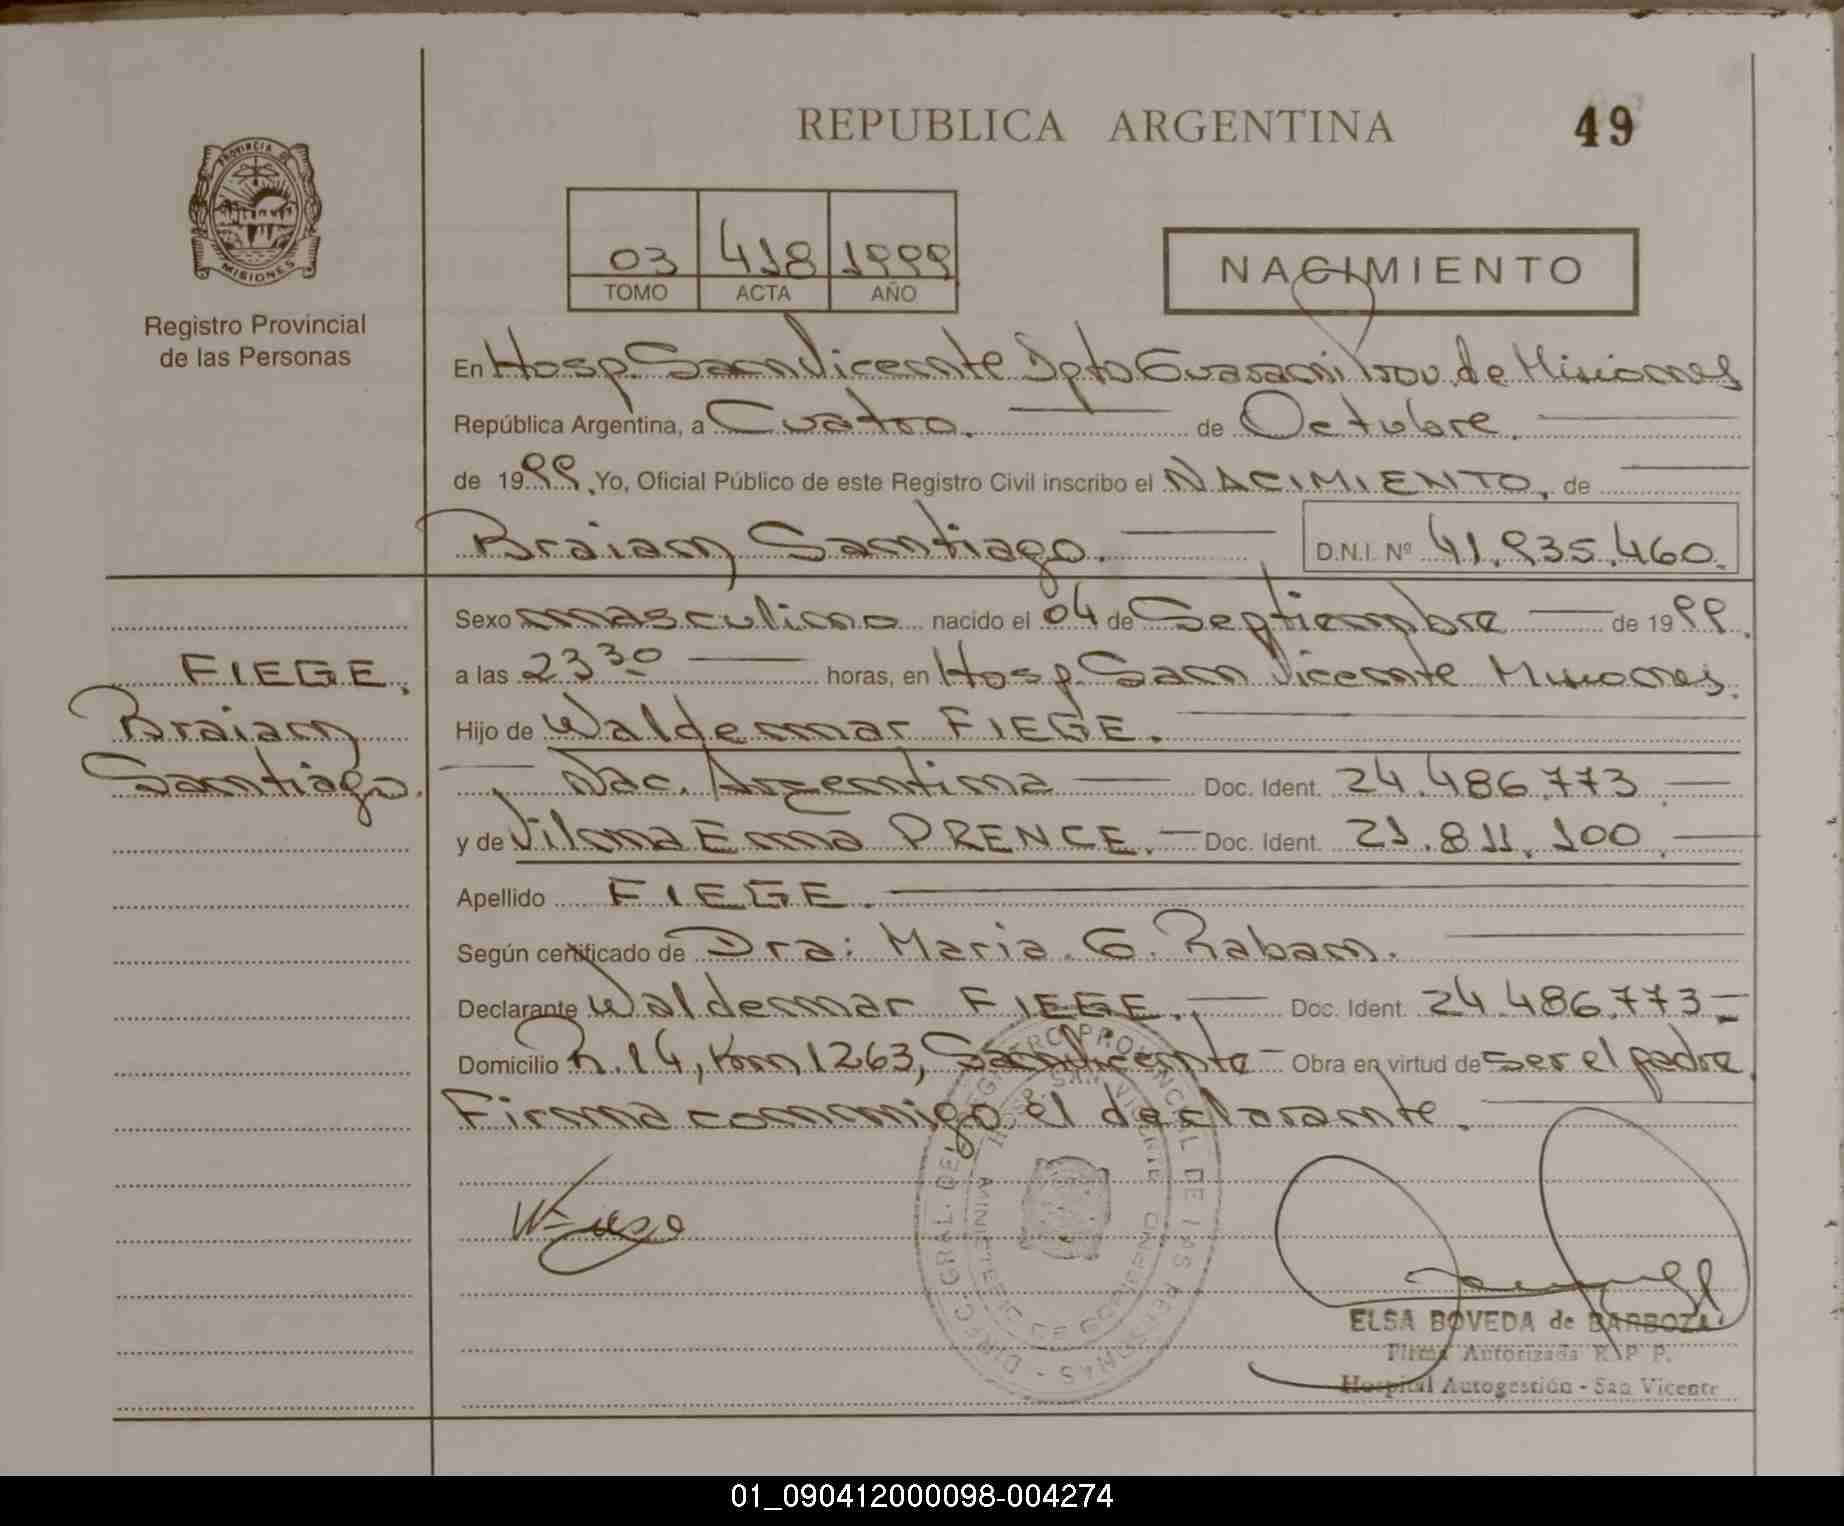 REPUBLICA ARGENTINA
49
PROVINCIA DE
MISIONES
Registro Provincial
de las Personas
03 418 1999
TOMO ACTA AÑO
NACIMIENTO
En Hosp. San Vicente Dpto Guarani Prov. de Misiones
República Argentina, a Cuatro. de Octubre.
de 1999. Yo, Oficial Público de este Registro Civil inscribo el NACIMIENTO, de
Braian Santiago. D.N.I. Nº 41.935.460.
Sexo masculino nacido el 04 de Septiembre de 1999.
a las 23 30 horas, en Hosp. San Vicente Misiones.
Hijo de Waldemar FIEGE.
Nac. Argentina Doc. Ident. 24.486.773.
y de Vilma Ema PRENCE. Doc. Ident. 21.811.100.
Apellido FIEGE.
Según certificado de Dra: Maria. G. Raban.
Declarante Waldemar FIEGE. Doc. Ident. 24.486.773
Domicilio R. 14, Km 1263, San Vicente Obra en virtud de ser el padre.
Firma conmigo el declarante.
FIEGE.
Braian
Santiago.
DIREC. GRAL. DEL REGISTRO PROVINCIAL DE LAS PERSONAS
HOSP. SAN VICENTE
ELSA BOVEDA de BARBOZA
Firma Autorizada R. P. P.
Hospital Autogestión - San Vicente
01_090412000098-004274